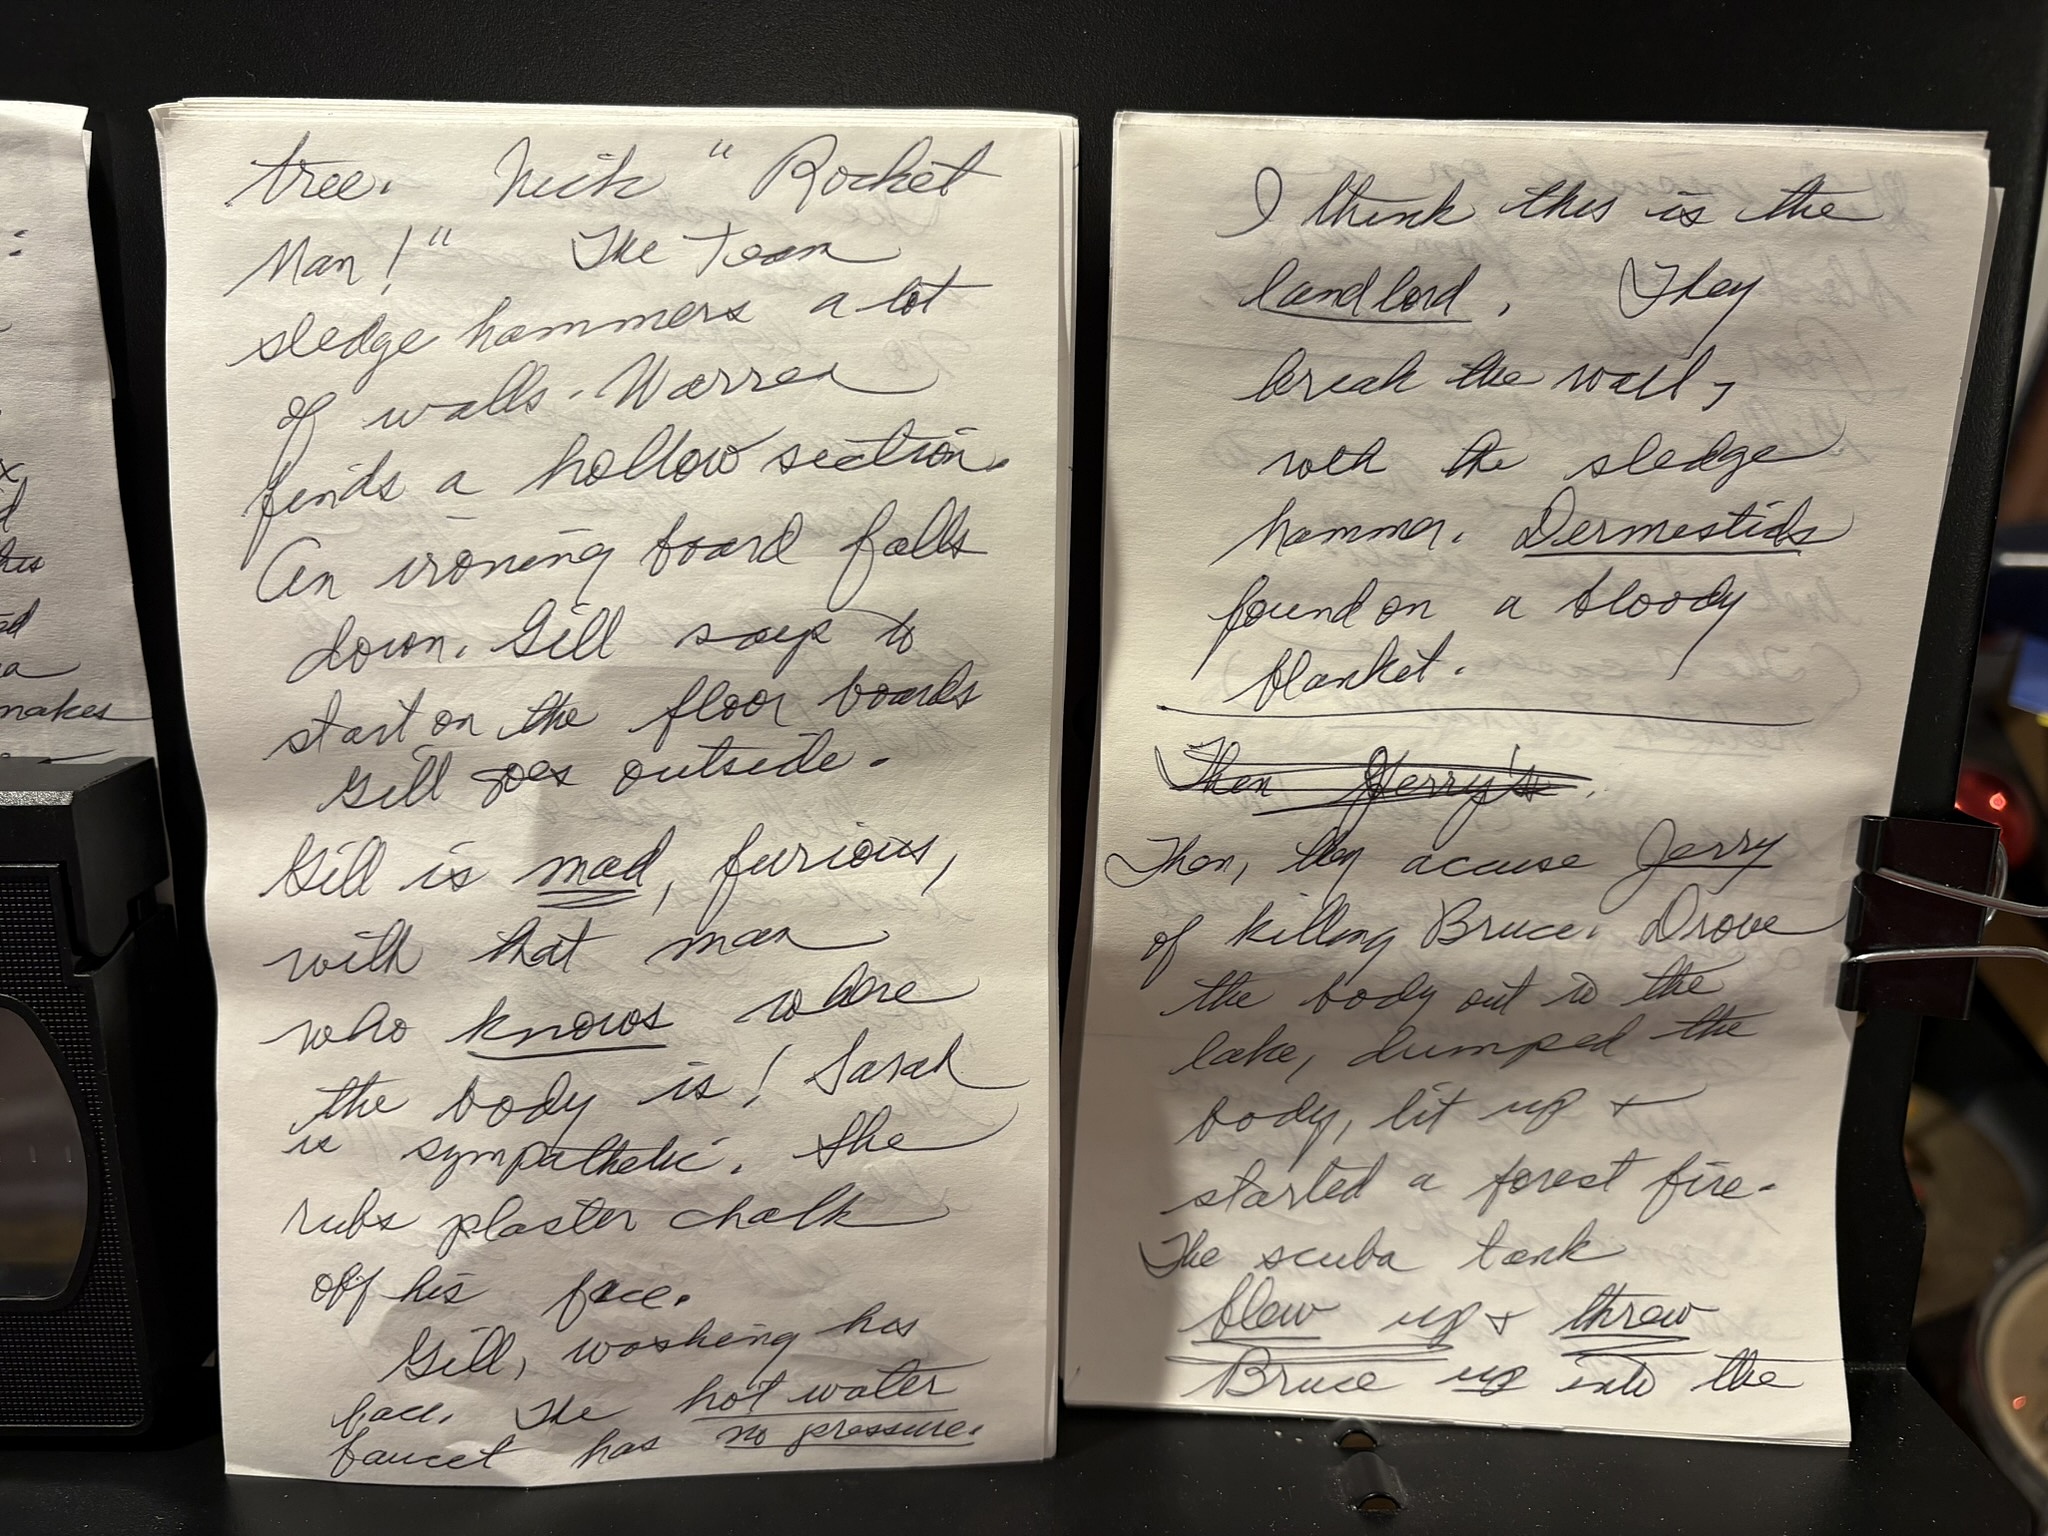 makes
tree. Nick " Rocket
Man!" The Team
sledge hammers a lot
of walls. Warren
finds a hollow section.
An ironing board falls
down. Gill says to
start on the floor boards
Gill goes outside.
Gill is mad, furious,
with that man
who knows where
the body is! Sarah
is sympathetic. She
rubs plaster chalk
off his face.
Gill, washing his
face. The hot water
faucet has no pressure.
I think this is the
landlord. They
break the wall,
with the sledge
hammer. Dermestids
found on a bloody
blanket.
Then Jerry's.
Then, they acuse Jerry
of killing Bruce. Drove
the body out to the
lake, dumped the
body, lit up +
started a forest fire.
The scuba tank
blew up + threw
Bruce up into the